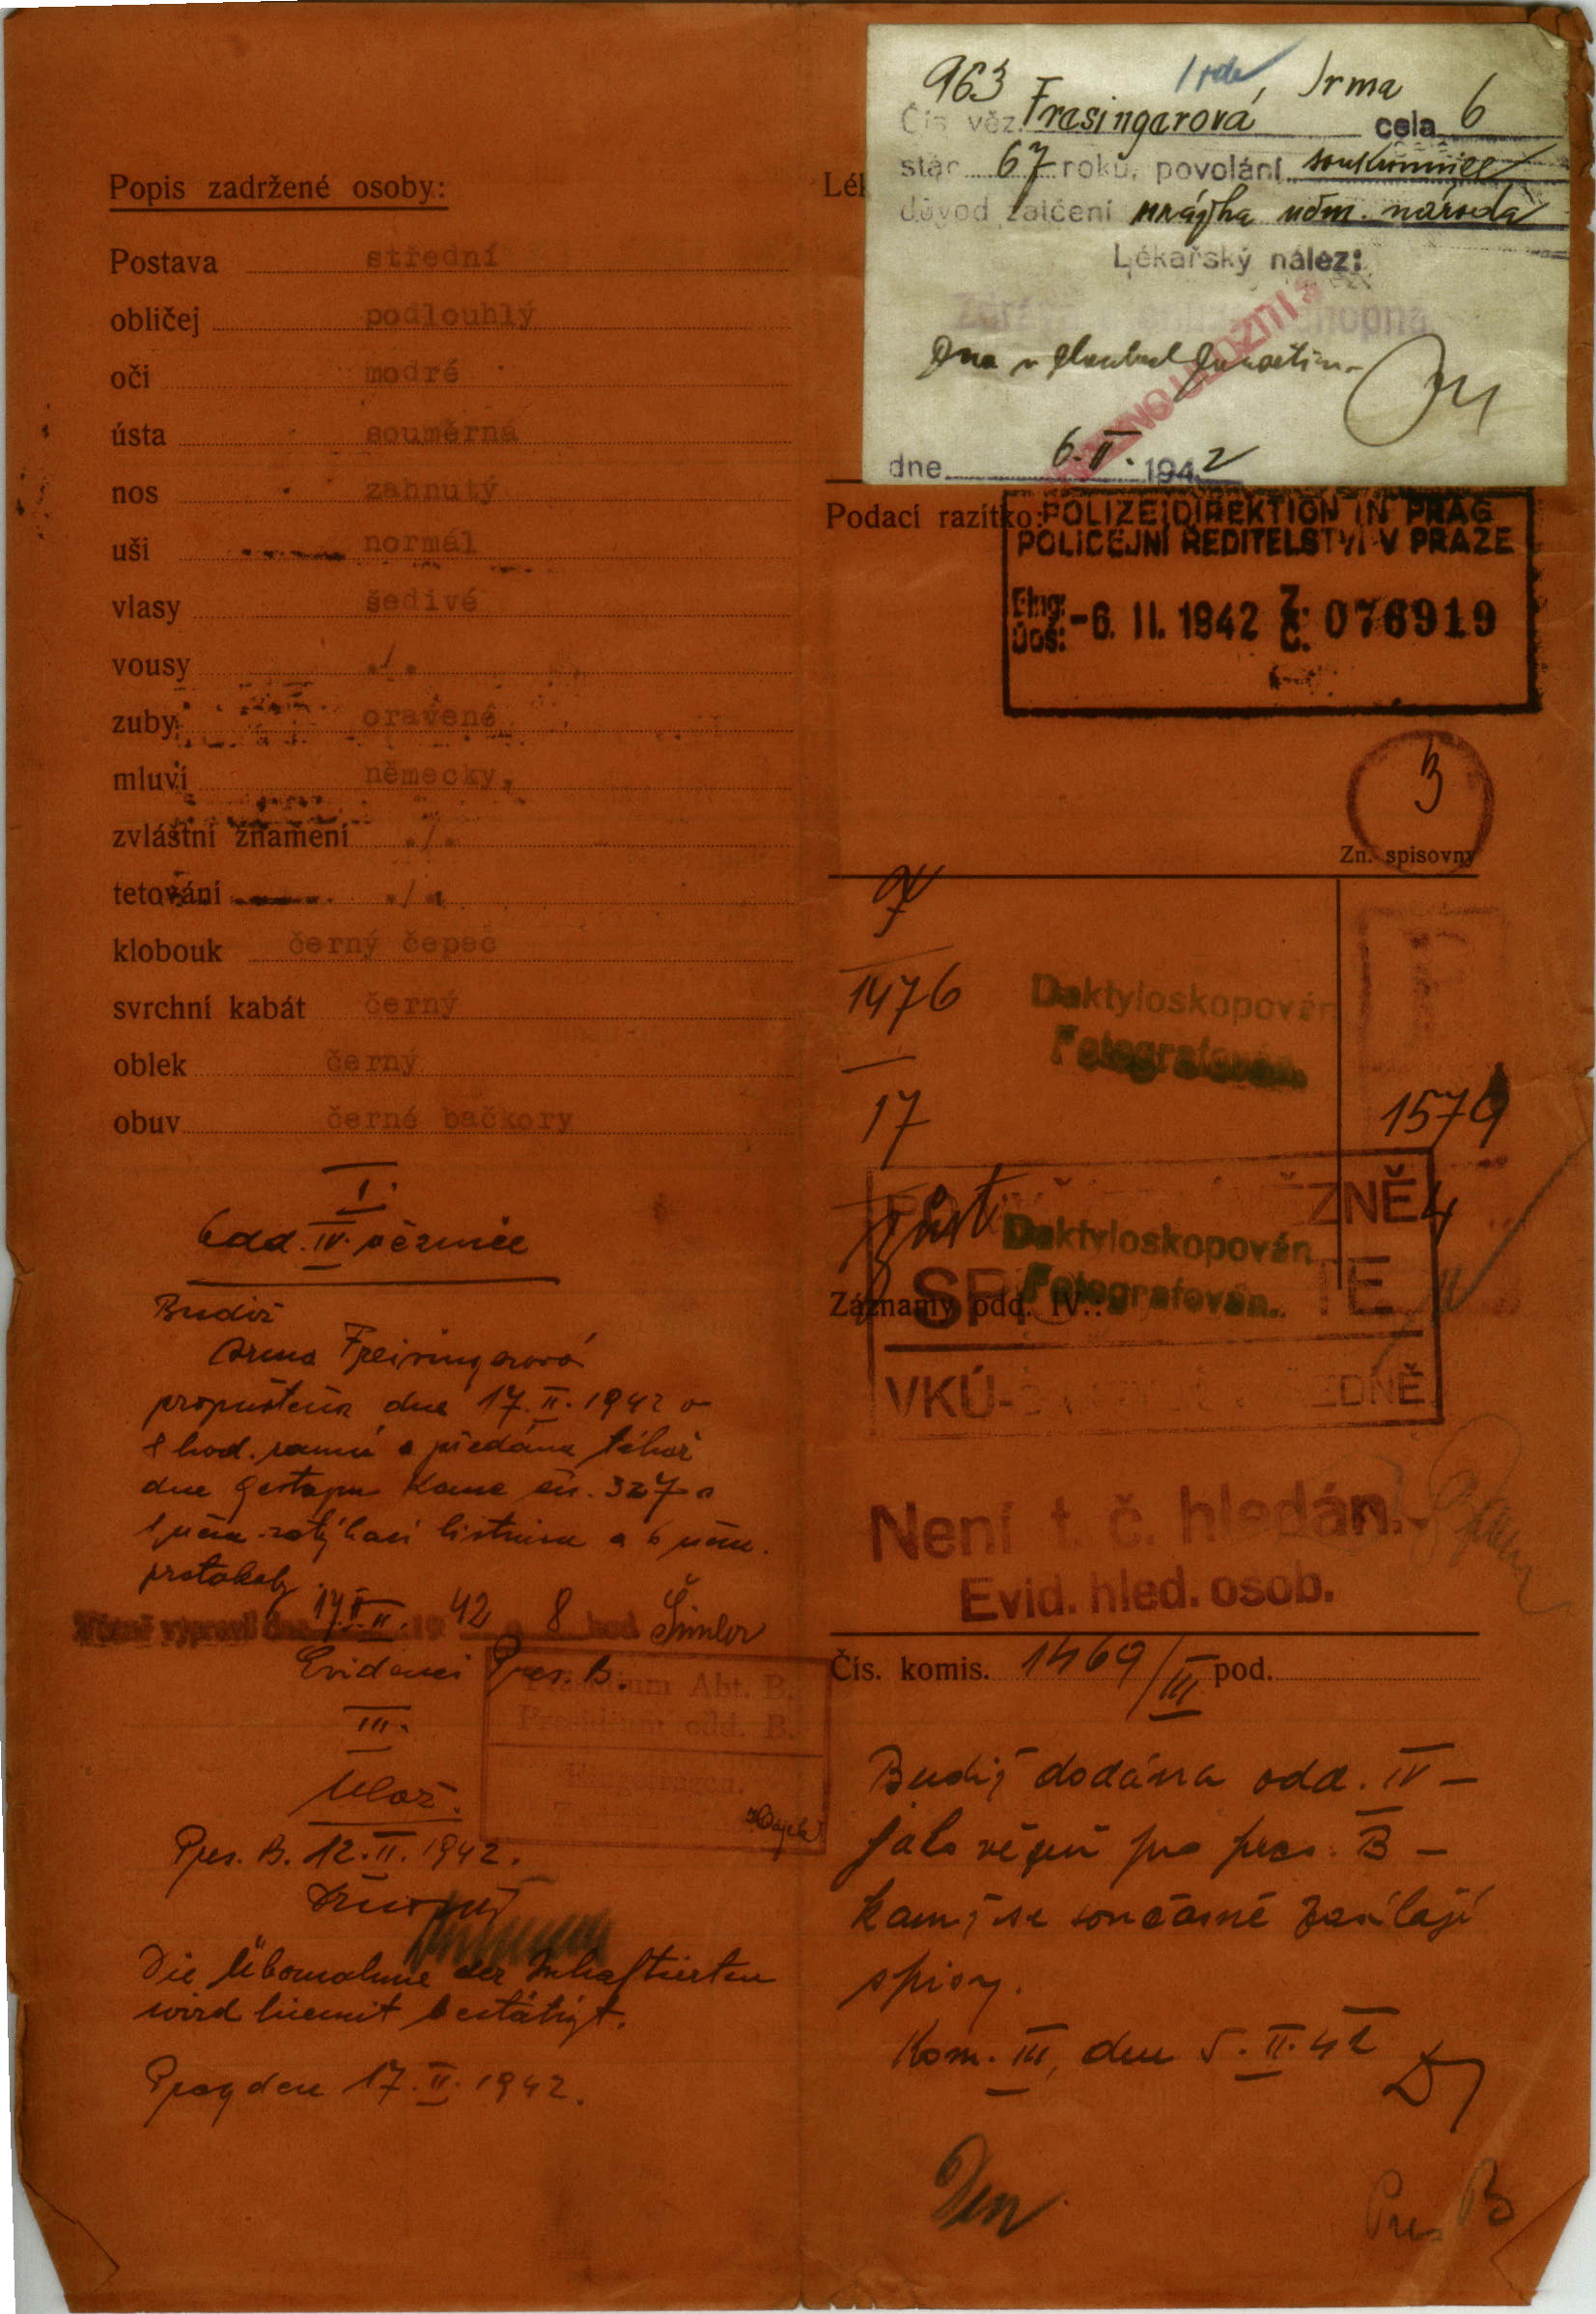 Popis zadržené osoby:
Postava střední
obličej podlouhlý
oči modré
ústa souměrná
nos zahnutý
uši normál
vlasy šedivé
vousy ./.
zuby oravené
mluví německy,
zvláštní znamení ./.
tetování ./.
klobouk černý čepec
svrchní kabát černý
oblek černý
obuv černé bačkory
I.
odd. IV. věznice
Budiž
Irma Freisingerová
propuštěna dne 17.II.1942 v
8 hod. ranní a předána téhož
dne Gestapu
protokoly.
17.II. 19 42 8 hod Šimler
Evidenci Pres. B.
Präsidium Abt. B.
Presidium odd. B.
Eingetragen.
III.
Ulož.
Pres. B. 12.II.1942.
Die Übernahme der Inhaftierten
wird hiemit bestätigt.
Prag den 17.II.1942.
963 Irma
Čís. věz. Frasingarová cela 6
stár 67 roků, povolání soukromnice
důvod zatčení urážka něm. národa
Lékařský nález:
dne 6.II. 1942
Lék
Podací razítko:
POLIZEIDIREKTION IN PRAG
POLICEJNÍ ŘEDITELSTVÍ V PRAZE
Eing: Doš: -6. II. 1942 Z. Č. 076919
3
Zn. spisovny
1476
Daktyloskopován
Fotografován.
17
1579
Daktyloskopován
Fotografován.
Záznamy odd. IV.:
VKÚ-
Není t. č. hledán.
Evid. hled. osob.
Čís. komis. 1469/III pod.
Budiž dodána odd. IV -
jako vězeň pro pres. B -
kamž se současně zasílají
spisy.
Kom. III, dne 5.II.42
Pres B